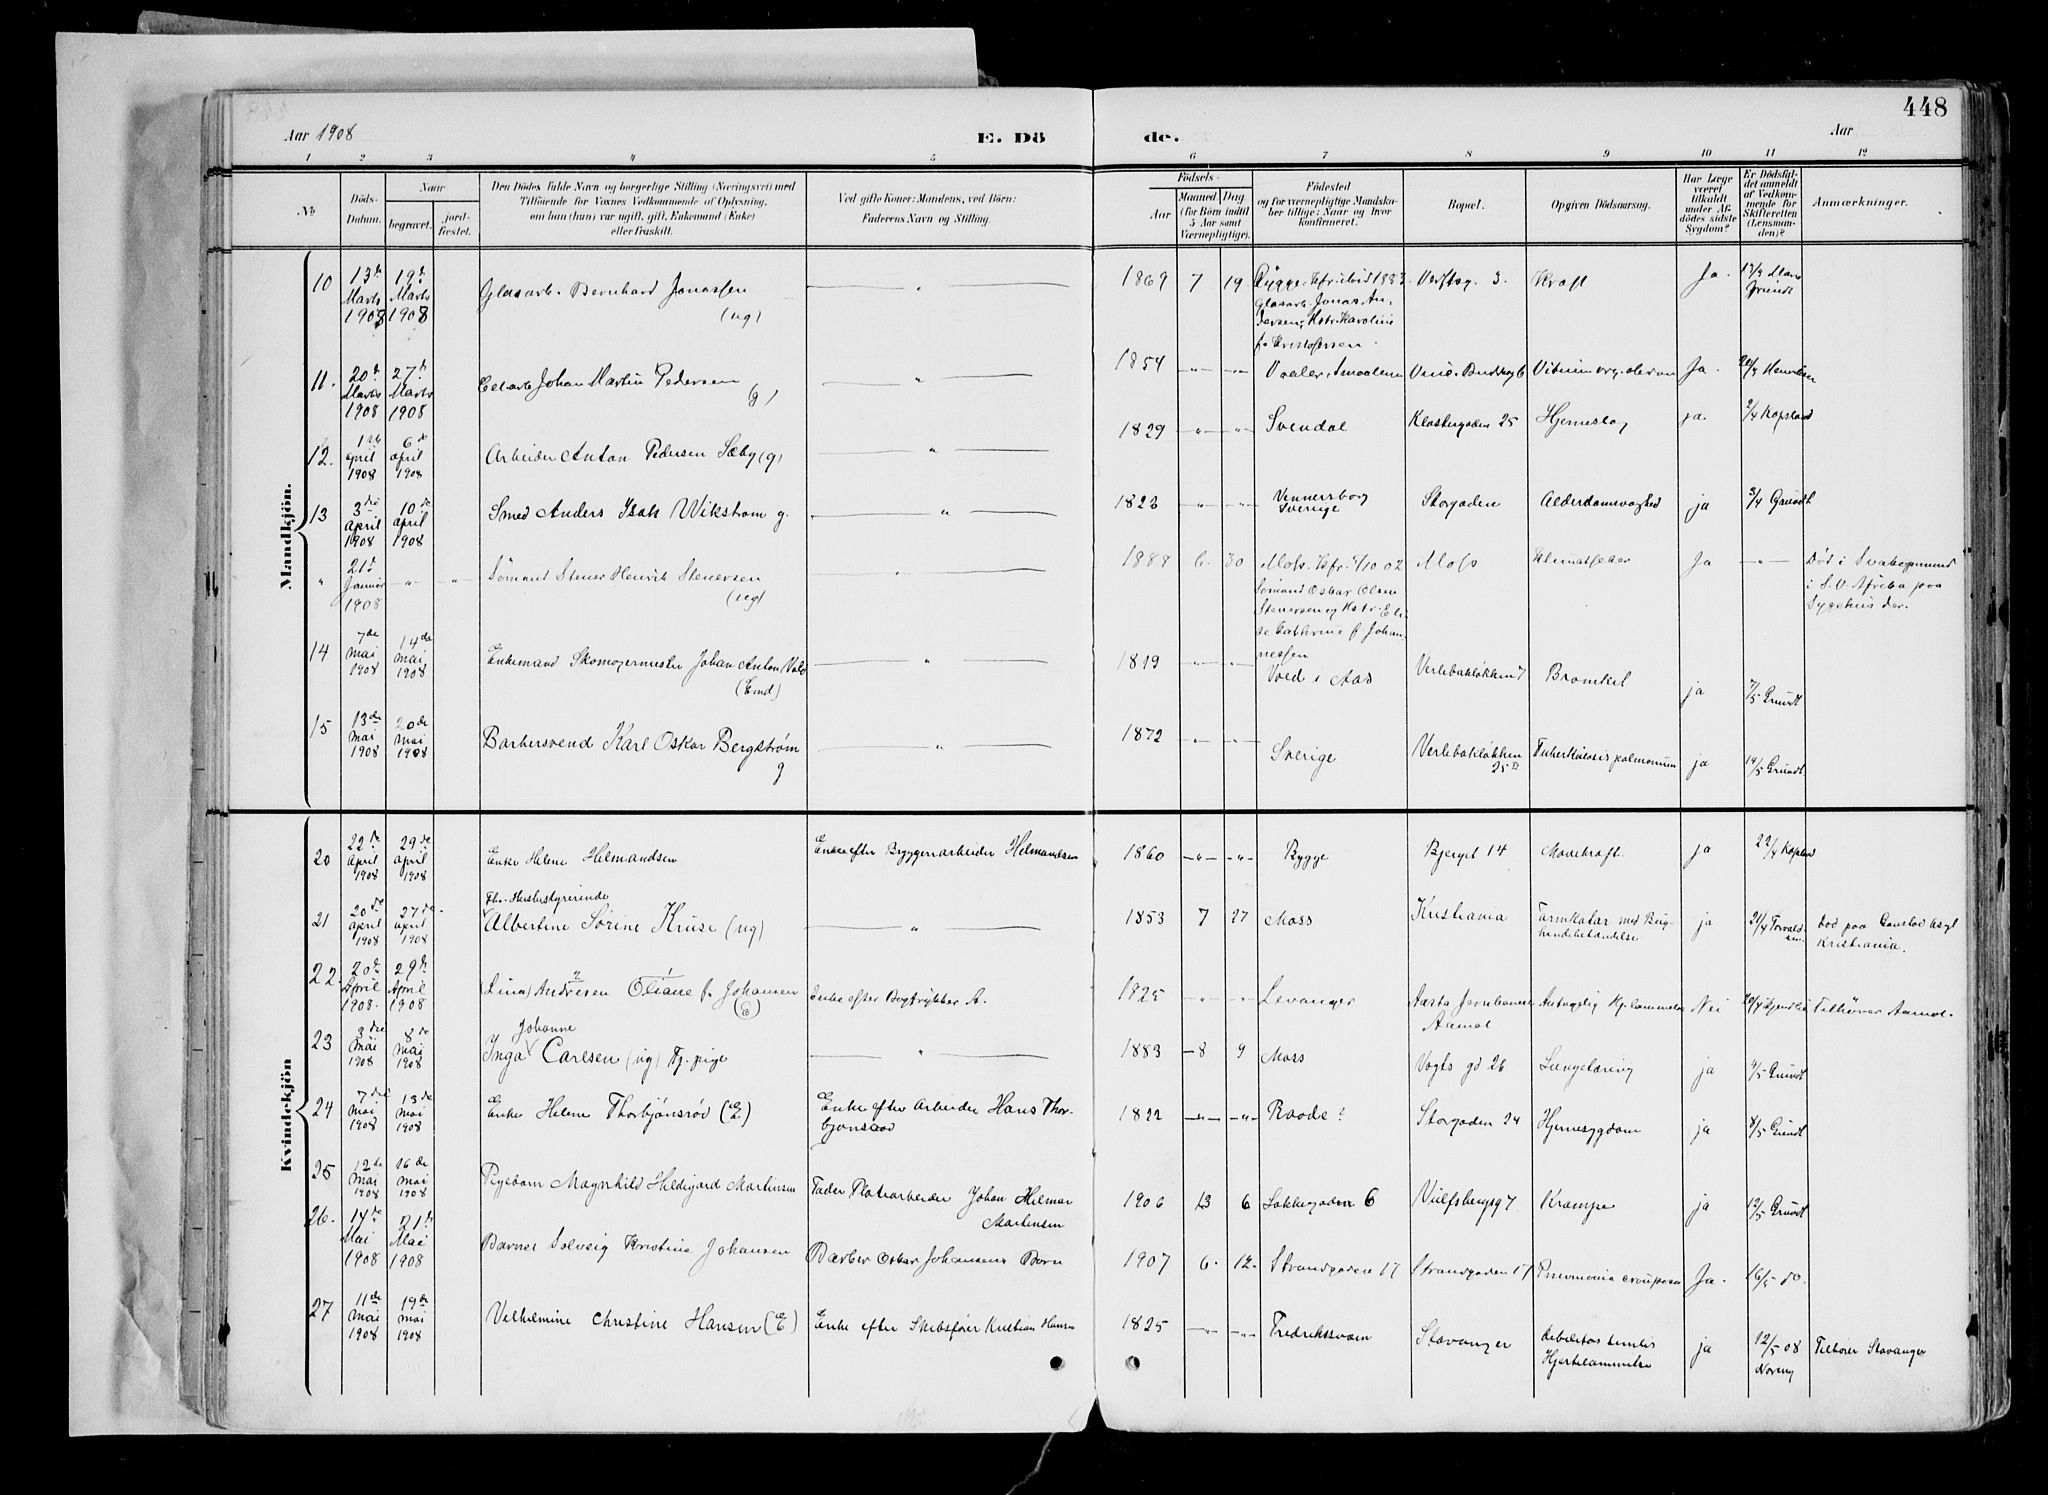 448
Aar 1908
E. Dö
de.
Aar
1 2 3 4 5 6 7 8 9 10 11 12
No
Döds-Datum.
Naar
begravet.
jord-fæstet.
Den Dödes fulde Navn og borgerlige Stilling (Næringsvei) med
Tilföiende for Voxnes Vedkommende af Oplysning,
om han (hun) var ugift, gift, Enkemand (Enke)
eller fraskilt.
Ved gifte Koner: Mandens, ved Börn:
Faderens Navn og Stilling.
Födsels-
Aar
Maaned
Dag
(for Börn indtil
5 Aar samt
Værnepligtige).
Födested
og for værnepligtige Mandsku-
ber tillige: Naar og hvor
konfirmeret.
Bopæl.
Opgiven Dödsaarsag.
Har Læge
været
tilkaldt
under Af-
dödes sidste
Sygdom?
Er Dödsfal-
det anmeldt
af Vedkom-
mende for
Skifteretten
(Lensman-
den)?
Anmærkninger.
Mandkjön.
10 13de Marts 1908 19de Marts 1908 Glasarb. Bernhard Jonassen (ug) — " — 1869 7 19 Rygge. Kfr. ibid 1883. Verftsg. 3. Kræft Ja.
Glasarb. Jonas An-
dersen, Kstr. Karoline
f.
11. 20de Marts 1908 27de Marts 1908 Johan Martin Pedersen (g) — " — 1854 - " - - " - Vaaler, Smaalenene Ja.
12. 1ste april 1908 6de april 1908 Arbeider Anton Pedersen Sæby (g) — " — 1829 - " - - " - Svendal Klostergaden 25 Hjerneslag ja. 2/4 Kopstad
13 3die april 1908 10de april 1908 Smed Anders Isak Wikstrøm g. — " — 1823 " - " - Vennersborg Sverige Storgaden Alderdomsvaghed ja 3/4 Grundt
" 21de Januar 1908 - " - - " - Sømand Stener Henrik Stenersen (ug) — " — 1888 6. 30 Moss. Kfr. 5/10 02 Moss Klimatfeber Ja - " - Død i Svakopmund
i S.V. Afrika paa
Sygehus der.
Sømand Oskar Olsen
Stenersen og Kstr. Eli-
se Cathrine f. Johan-
nessen
14 7de mai 1908 14de mai 1908 Enkemand Skomagermester Johan Anton Vold (Emd) — " — 1819 - " - - " - Voed i Aas Verlebakløkken 7 ja 7/5 Grundt
15 13de mai 1908 20de mai 1908 Barbersvend Karl Oskar Bergstrøm g — " — 1872 - " - - " - Sverige Verlebakløkken 25 Tuberkulosis pulmonum ja 14/5 Grundt
Kvindekjön
20 22de april 1908 29de april 1908 Enke Helene Helmandsen Enke efter Byggeriarbeider Helmandsen 1860 - " - - " - Rygge Bjerget 14 Mavekræft. ja 22/4 Kopstad
21 20de april 1908 27de april 1908 Fhv. Husbestyrerinde
Albertine Sørine Kruse (ug) — " — 1853 7 27 Moss Kristiania Tarmkatar med Bug-
hindebetændelse ja 21/4 Torvald-
sen. Død paa Gaustad Asyl
Kristiania.
22. 20de April 1908. 29de April 1908 (Lina) Andresen Oliane f. Johansen (E) Enke efter Bogtrykker A. 1825 - " - " Levanger Aasta Jernbanest.
Aamot Hj.lammelse Nei Tilhører Aamot.
23 3die mai 1908 8de mai 1908 Johanne
Inga Carlsen (ug) Tj.pige — " — 1883 - 8 9 Moss Vogts gd 26 Lungetæring ja 4/5 Grundt
24 7de mai 1908 13de mai 1908 Enke Helene Thorbjønsrød (E) Enke efter Arbeider Hans Thor-
bjønsrød 1822 - " - - " - Raade? Storgaden 24 Hjernesygdom ja 8/5 Grundt
25 12de mai 1908 16de mai 1908 Pigebarn Magnhild Hildegard Martinsen Fader Platearbeider Johan Helmer
Martinsen 1906 6 Løkkegaden 6 Vulfsbergsg 7 Krampe ja 12/5 Grundt
26. 14de Mai 1908 21de Mai 1908 Barnet Solveig Kristine Johansen Barber Oskar Johansens Barn 1907 6. 12. Strandgaden 17 Strandgaden 17 Pneumonia crouposa Ja. 16/5 do.
27 11de mai 1908 19de mai 1908 Vilhelmine Christine Hansen (E) Enke efter Skibsfører Kristian Hansen 1825 - " - - " - Fredriksværn Stavanger debilitas senilis
Hjertelammelse ja 12/5 08 Tilhører Stavanger